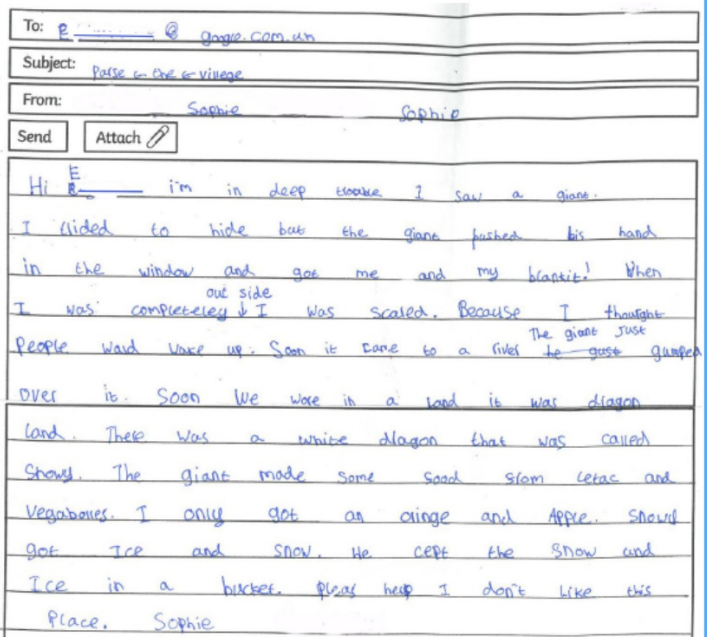 To: E ________ @ google.com.un
Subject: Parse ← the ← vinege
From: Sophie Sophie
Send Attach
Hi E ______ i'm in deep trouble I saw a giant.
I dided to hide but the giant pushed his hand
in the window and got me and my blantit! When
out side
I was completeley ↓ I was scared. Because I thought
The giant Just
People wald wake up. Soon it came to a river he gust gumped
over it. Soon We wore in a land it was dragon
land. There was a white dragon that was called
Snowy. The giant made some food from letac and
Vegabones. I only got an oringe and Apple. Snowy
got Ice and snow. He cept the snow and
Ice in a bucket. pleas help I don't like this
Place. Sophie